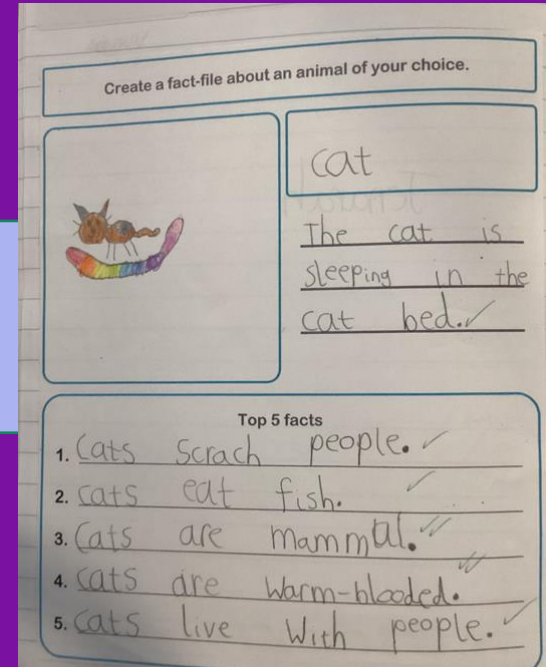 Create a fact-file about an animal of your choice.
cat
The cat is
sleeping in the
cat bed.
Top 5 facts
1. Cats Scrach people.
2. cats eat fish.
3. Cats are mammal.
4. cats are Warm-blooded.
5. cats live With people.